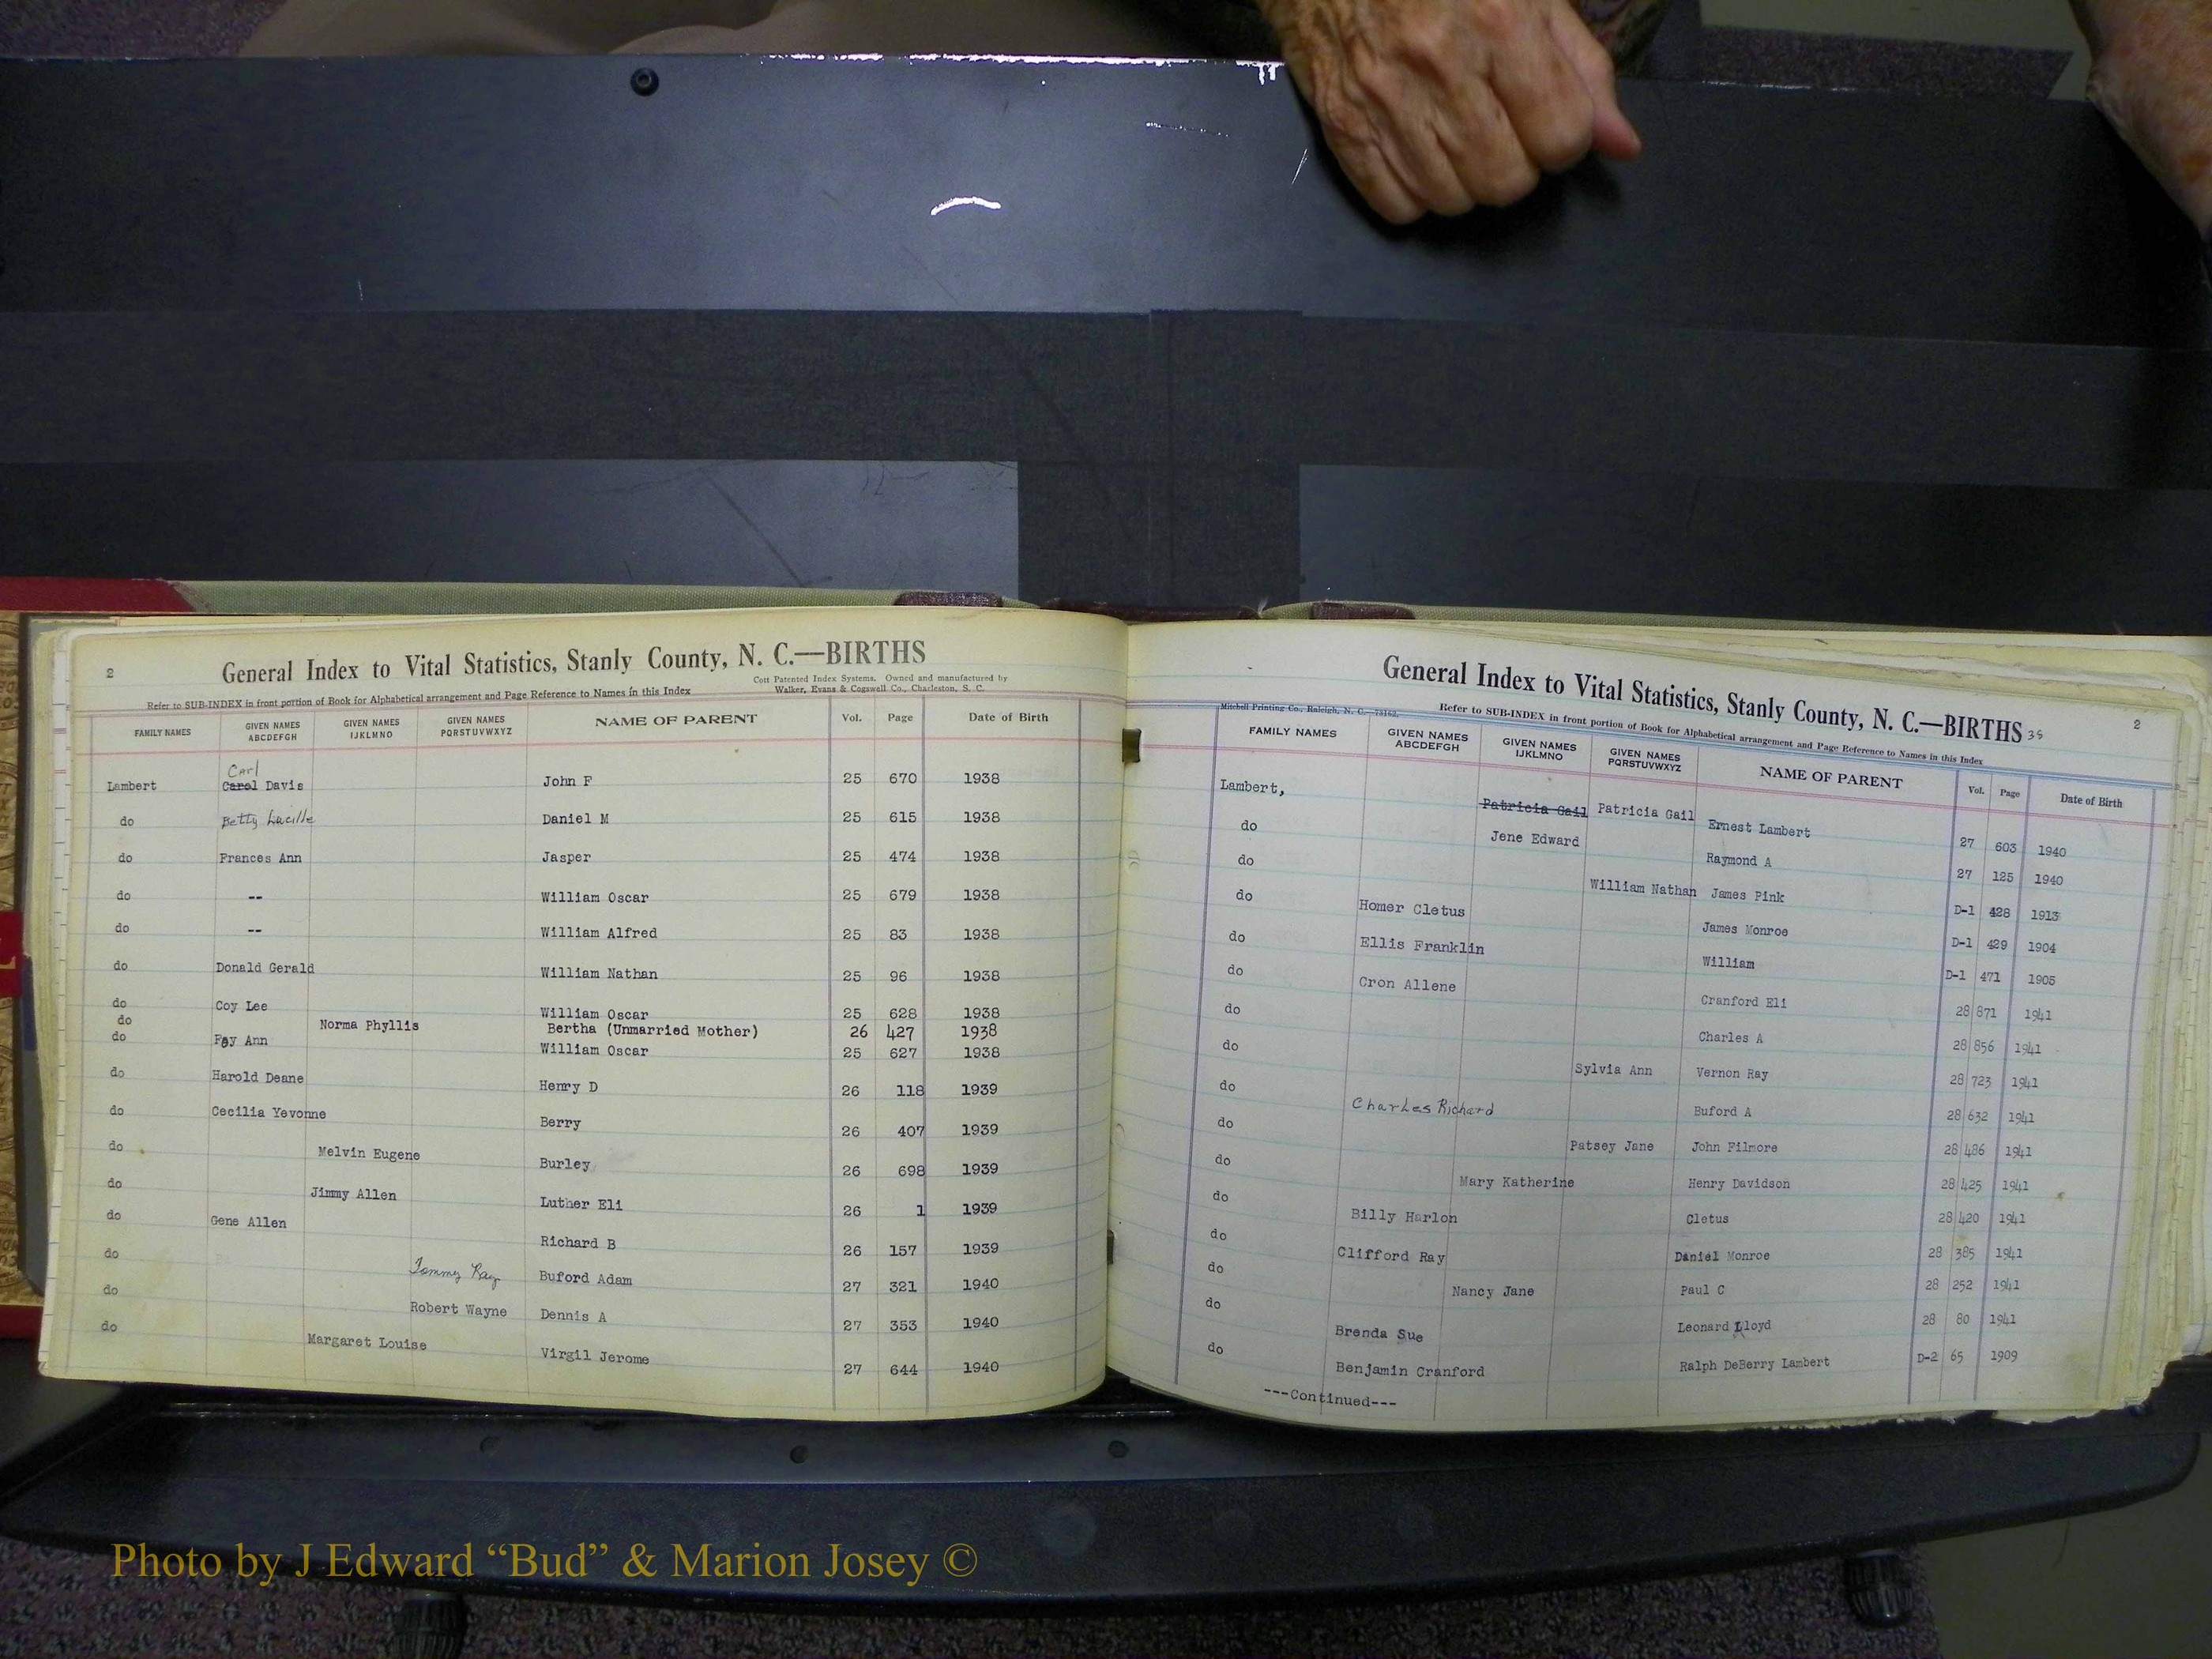 2
General Index to Vital Statistics, Stanly County, N. C.—BIRTHS
Cott Patented Index Systems. Owned and manufactured by
Refer to SUB-INDEX in front portion of Book for Alphabetical arrangement and Page Reference to Names in this Index Walker, Evans & Cogswell Co., Charleston, S. C.
FAMILY NAMES GIVEN NAMES ABCDEFGH GIVEN NAMES IJKLMNO GIVEN NAMES PQRSTUVWXYZ NAME OF PARENT Vol. Page Date of Birth
Carl
Lambert Carol Davis John F 25 670 1938
do Betty Lucille Daniel M 25 615 1938
do Frances Ann Jasper 25 474 1938
do -- William Oscar 25 679 1938
do -- William Alfred 25 83 1938
do Donald Gerald William Nathan 25 96 1938
do Coy Lee William Oscar 25 628 1938
do Norma Phyllis Bertha (Unmarried Mother) 26 427 1938
do Fay Ann William Oscar 25 627 1938
do Harold Deane Henry D 26 118 1939
do Cecilia Yevonne Berry 26 407 1939
do Melvin Eugene Burley 26 698 1939
do Jimmy Allen Luther Eli 26 1 1939
do Gene Allen Richard B 26 157 1939
do Tommy Ray Buford Adam 27 321 1940
do Robert Wayne Dennis A 27 353 1940
do Margaret Louise Virgil Jerome 27 644 1940
General Index to Vital Statistics, Stanly County, N. C.—BIRTHS 38
2
Mitchell Printing Co., Raleigh, N. C.—73162. Refer to SUB-INDEX in front portion of Book for Alphabetical arrangement and Page Reference to Names in this Index
FAMILY NAMES GIVEN NAMES ABCDEFGH GIVEN NAMES IJKLMNO GIVEN NAMES PQRSTUVWXYZ NAME OF PARENT Vol. Page Date of Birth
Lambert, Patricia Gail Patricia Gail Ernest Lambert 27 603 1940
do Jene Edward Raymond A 27 125 1940
do William Nathan James Pink D-1 428 1913
do Homer Cletus James Monroe D-1 429 1904
do Ellis Franklin William D-1 471 1905
do Cron Allene Cranford Eli 28 871 1941
do Charles A 28 856 1941
do Sylvia Ann Vernon Ray 28 723 1941
do Charles Richard Buford A 28 632 1941
do Patsey Jane John Filmore 28 486 1941
do Mary Katherine Henry Davidson 28 425 1941
do Billy Harlon Cletus 28 420 1941
do Clifford Ray Daniel Monroe 28 385 1941
do Nancy Jane Paul C 28 252 1941
do Brenda Sue Leonard Lloyd 28 80 1941
do Benjamin Cranford Ralph DeBerry Lambert D-2 65 1909
---Continued---
Photo by J Edward “Bud” & Marion Josey ©